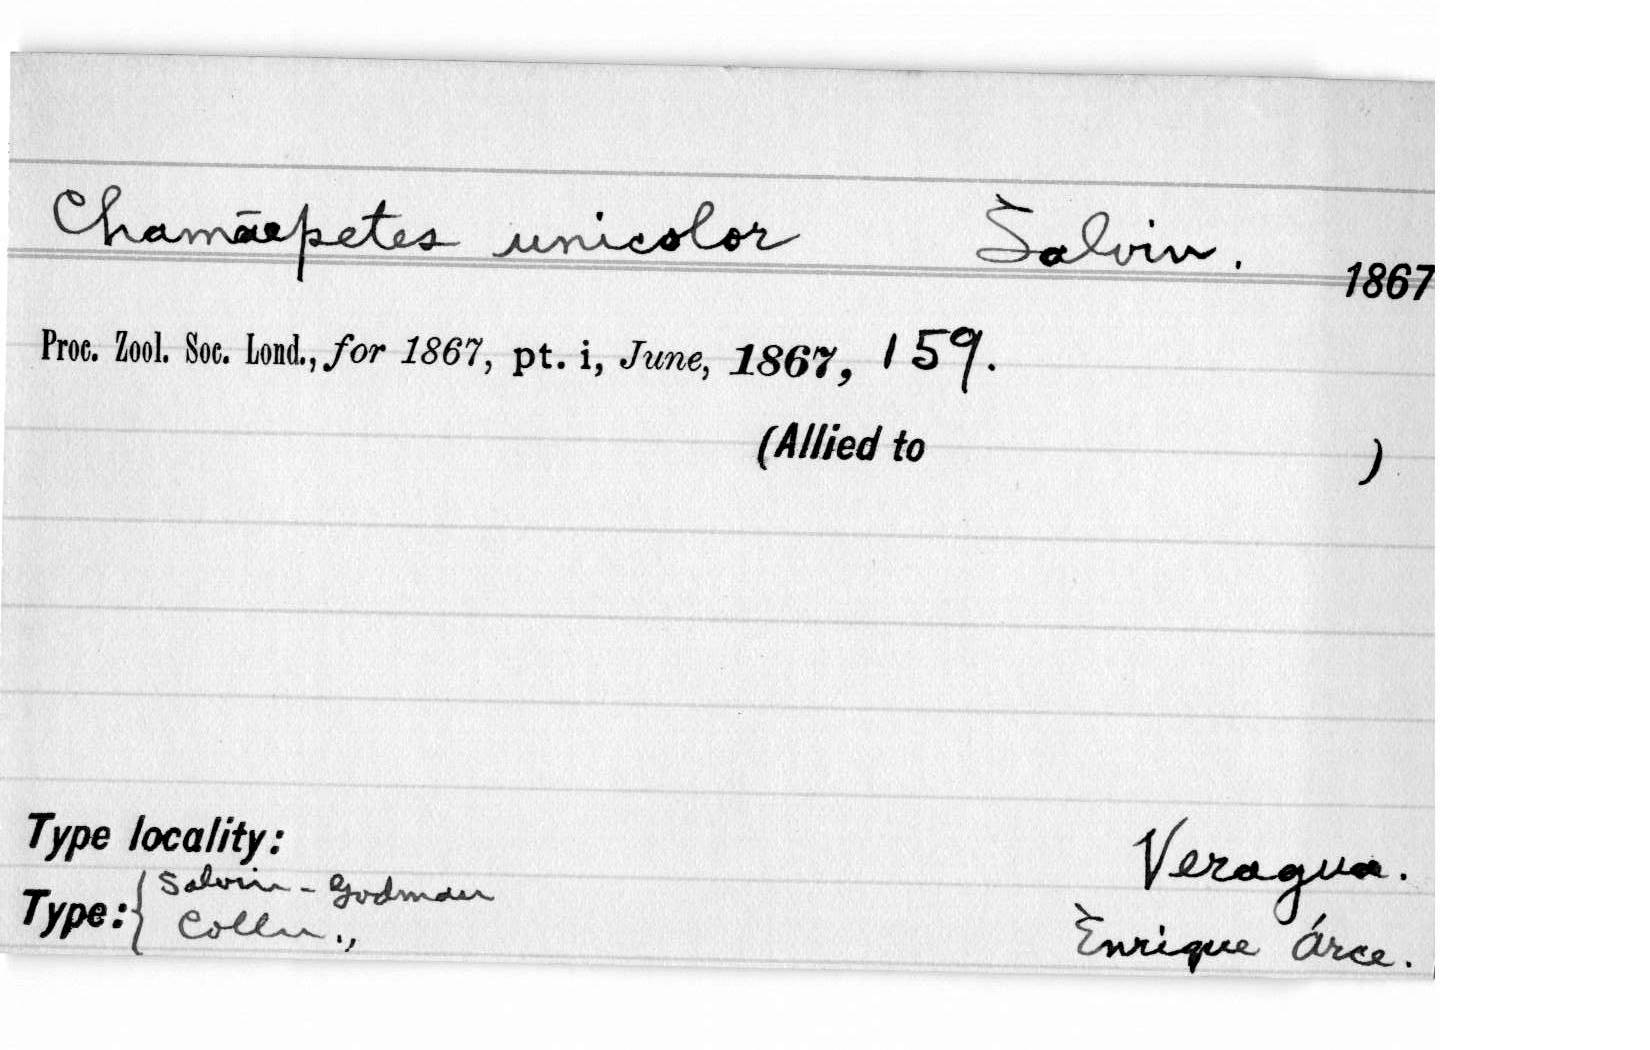 Chamāepetes unicolor Salvin. 1867
Proc. Zool. Soc. Lond., for 1867, pt. i, June, 1867, 159.
(Allied to )
Type locality: Veragua.
Type: { Salvin-Godman
Colln., Enrique Árce.